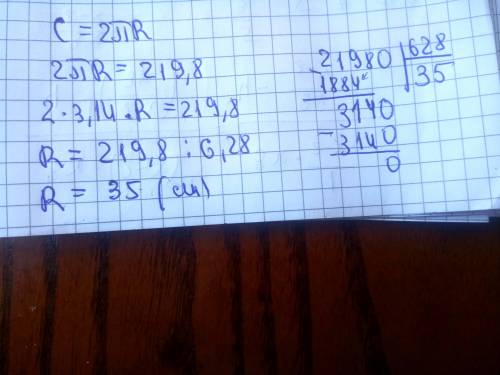 C = 2πR
2πR = 219,8
2·3,14·R = 219,8
R = 219,8 : 6,28
R = 35 (см)
21980 628
1884 35
3140
- 3140
0